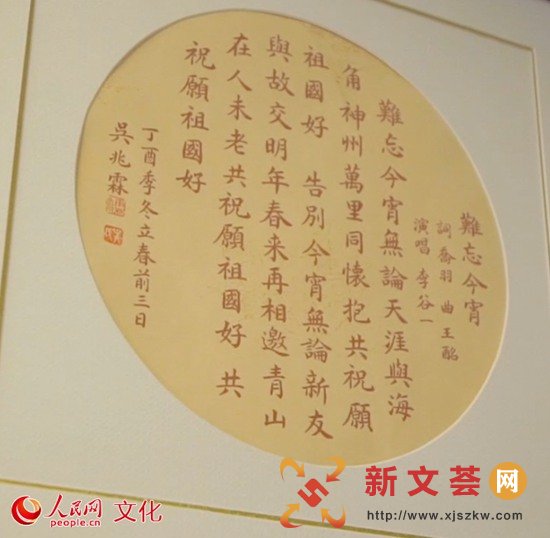 難忘今宵
詞 喬羽 曲 王酩
演唱 李谷一
難忘今宵無論天涯與海
角神州萬里同懷抱共祝願
祖國好 告別今宵無論新友
與故交明年春来再相邀青山
在人未老共祝願祖國好 共
祝願祖國好
丁酉季冬立春前三日
吳兆霖
人民网 文化
people.cn
新文荟网
http://www.xjszkw.com